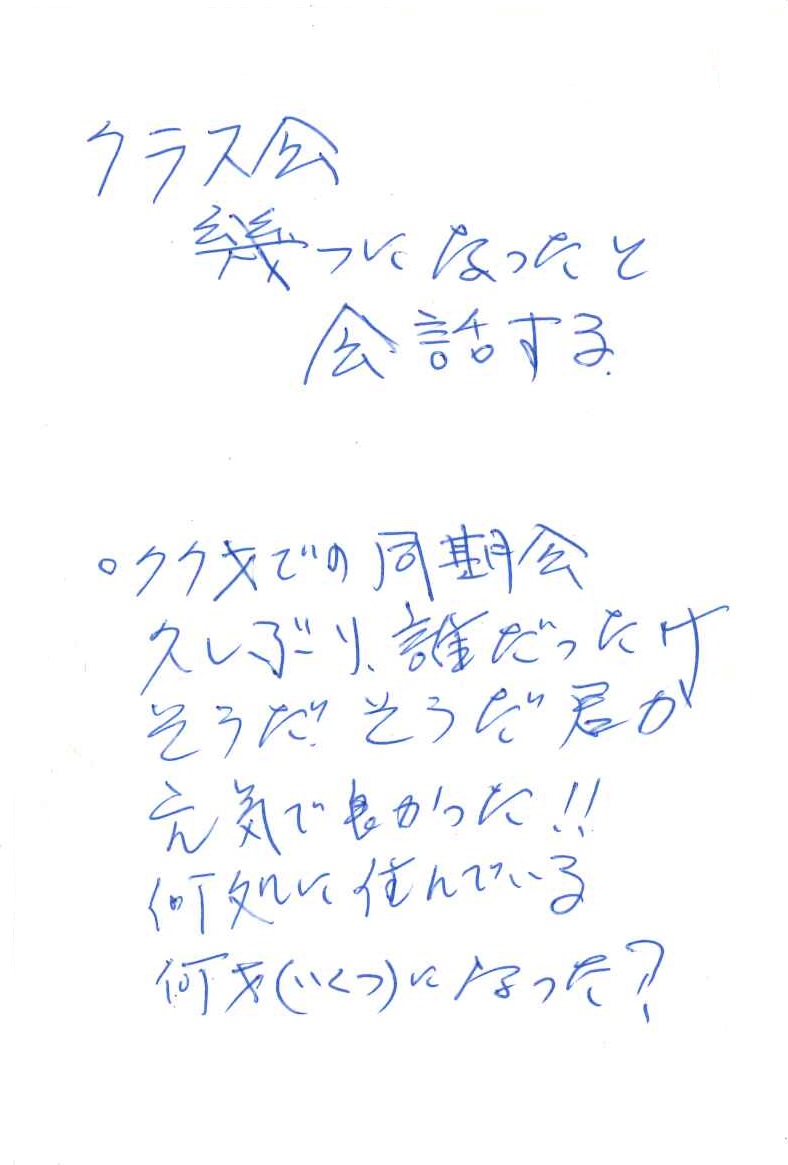 クラス会
幾つになったと
会話する
○77才での同期会
久しぶり、誰だったけ
そうだ そうだ 君か
元気で良かった!!
何処に住んでいる
何才(いくつ)になった?